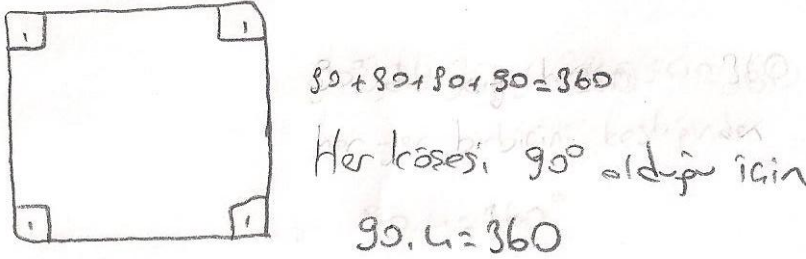 90+90+90+90=360
Her köşesi 90° olduğu için
90.4=360